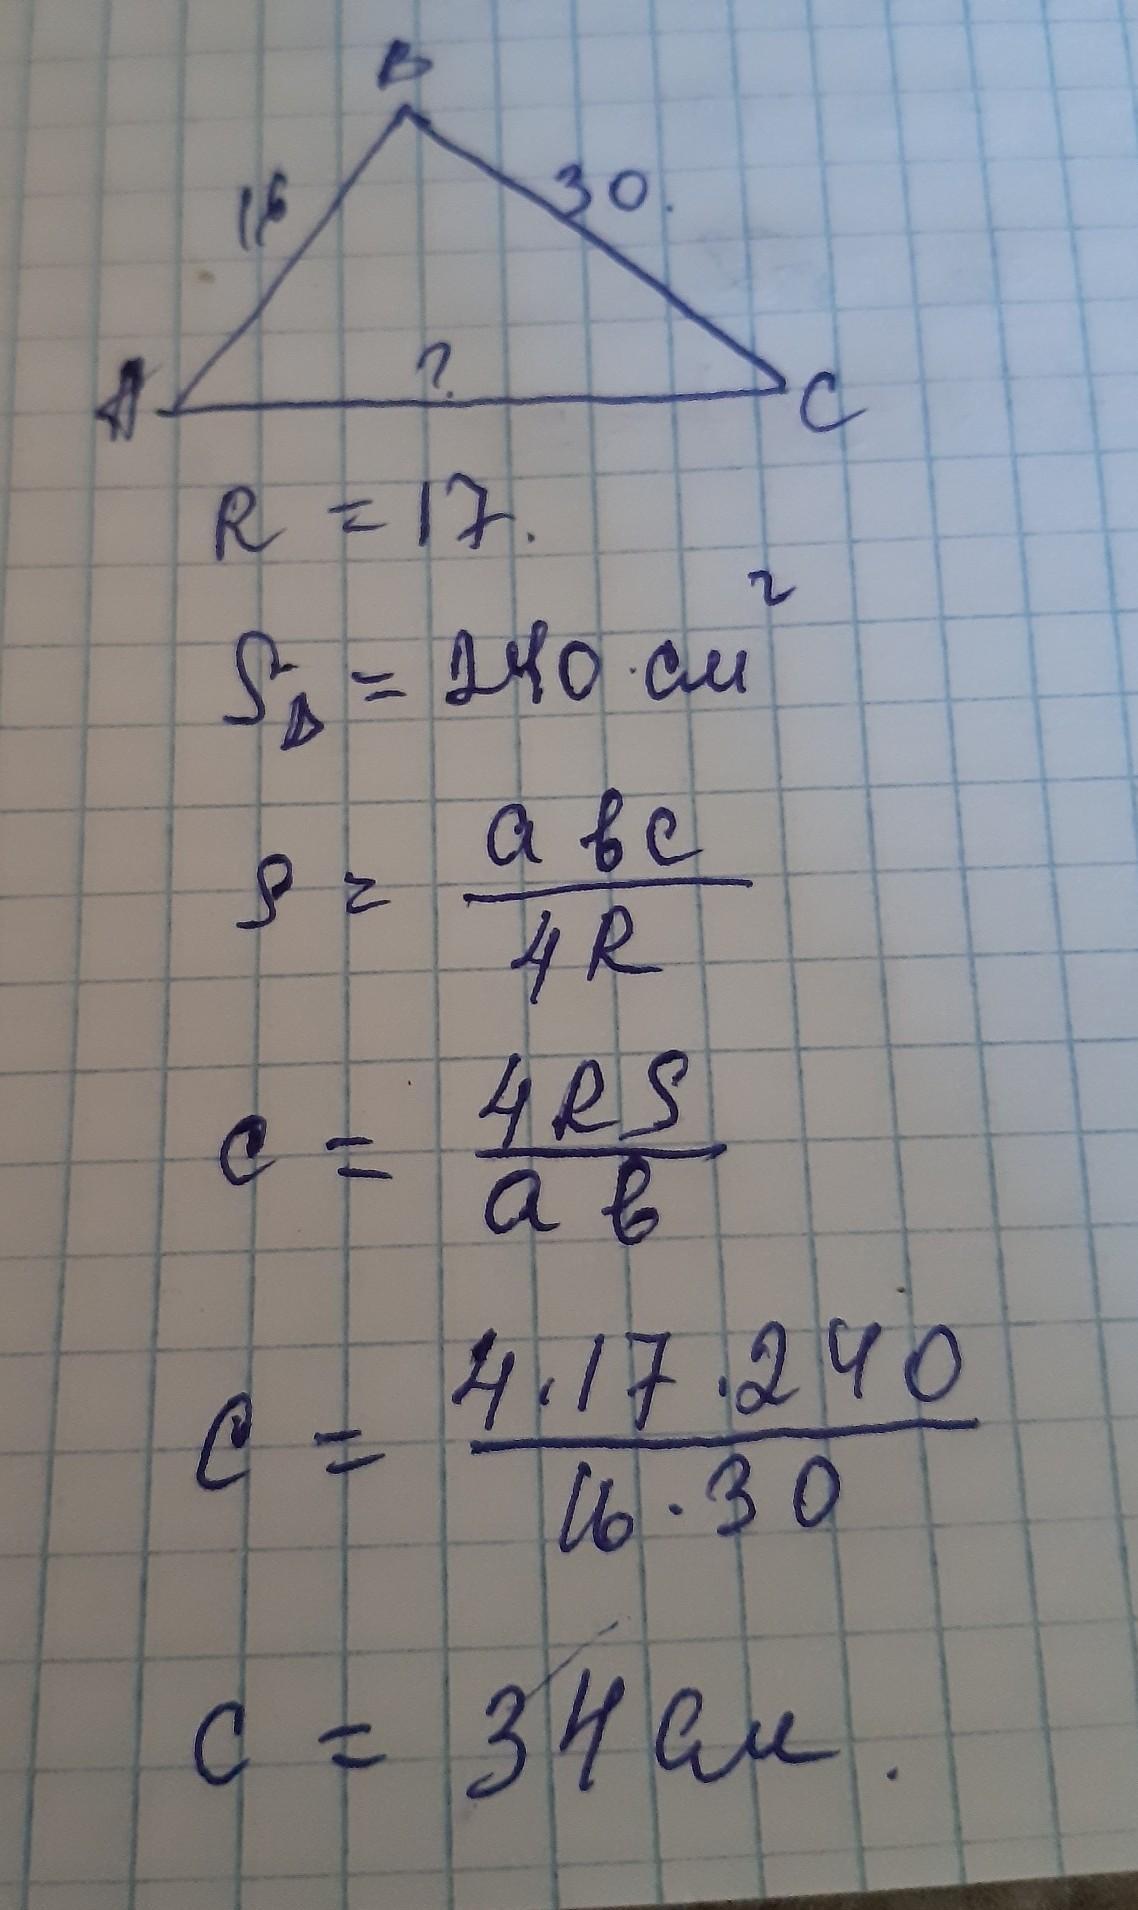 B
16
30.
A
?
C
R = 17.
S_Δ = 240 см²
S = \frac{a b c}{4 R}
c = \frac{4 R S}{a b}
c = \frac{4 \cdot 17 \cdot 240}{16 \cdot 30}
c = 34 см.